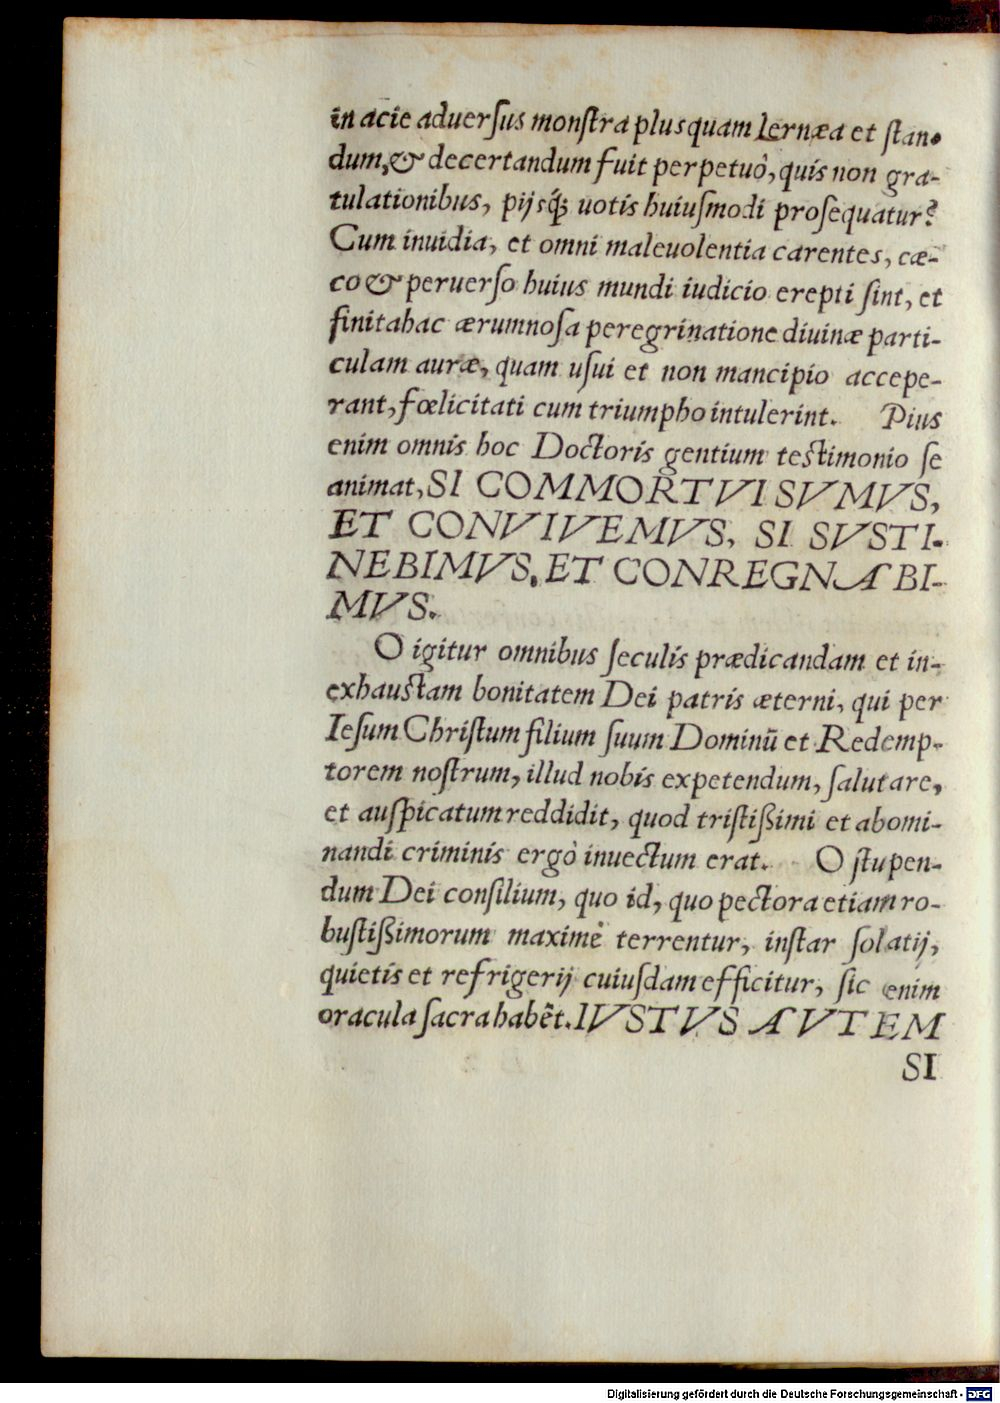 in acie aduerſus monſtra plusquam Lernæa et ſtan-
dum, & decertandum fuit perpetuò, quis non gra-
tulationibus, pijsq́ꝫ uotis huiuſmodi proſequatur?
Cum inuidia, et omni maleuolentia carentes, cæ-
co & peruerſo huius mundi iudicio erepti ſint, et
finita hac ærumnoſa peregrinatione diuinæ parti-
culam auræ, quam uſui et non mancipio accepe-
rant, fœlicitati cum triumpho intulerint. Pius
enim omnis hoc Doctoris gentium teſtimonio ſe
animat, SI COMMORTVI SVMVS,
ET CONVIVEMVS, SI SVSTI-
NEBIMVS, ET CONREGNABI-
MVS.
O igitur omnibus ſeculis prædicandam et in-
exhauſtam bonitatem Dei patris æterni, qui per
Ieſum Chriſtum filium ſuum Dominū et Redemp-
torem noſtrum, illud nobis expetendum, ſalutare,
et auſpicatum reddidit, quod triſtißimi et abomi-
nandi criminis ergò inuectum erat. O ſtupen-
dum Dei conſilium, quo id, quo pectora etiam ro-
buſtißimorum maximè terrentur, inſtar ſolatij,
quietis et refrigerij cuiuſdam efficitur, ſic enim
oracula ſacra habēt. IVSTVS AVTEM
SI
Digitalisierung gefördert durch die Deutsche Forschungsgemeinschaft - DFG